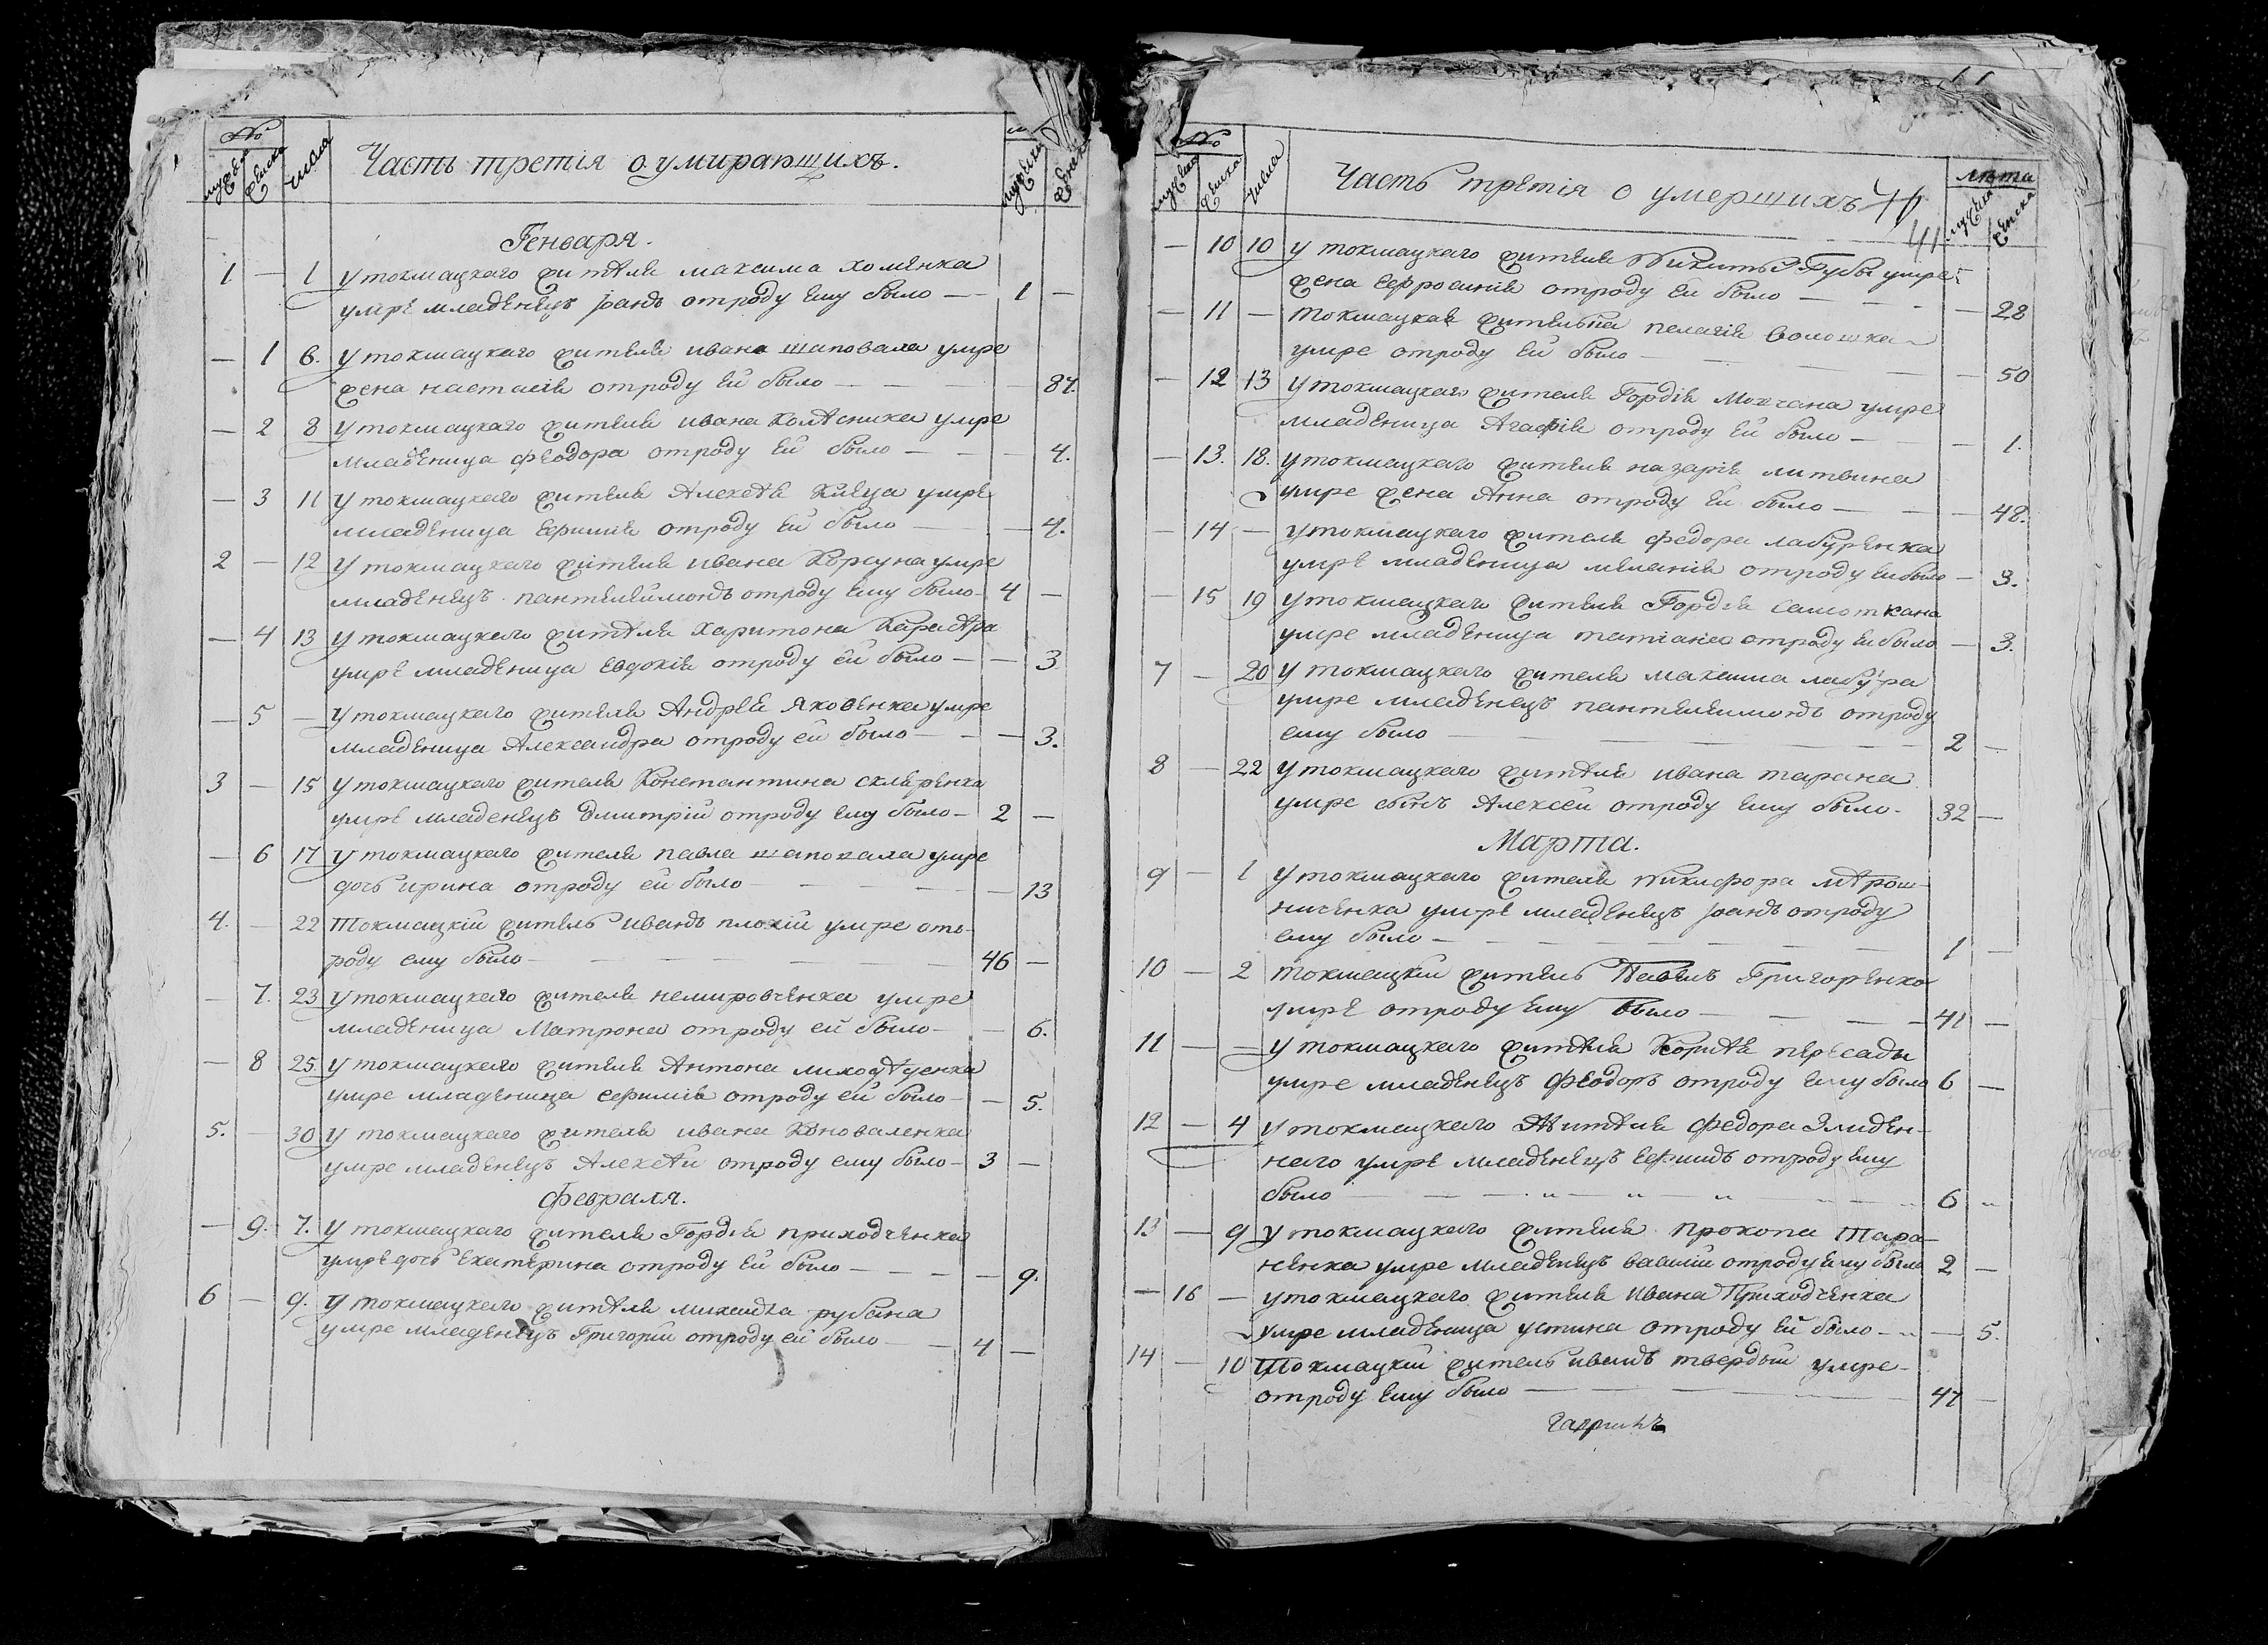 №
мужска
женска
числа
Часть третія о умирающихъ.
мужска
женск
Генваря.
1 — 1 У токмацкаго жителя максима хоменка
умре младенецъ іоанъ отроду ему было — 1 —
— 1 6. У токмацкаго жителя ивана шаповала умре
жена настасія отроду ей было — — 87.
— 2 8 У токмацкаго жителя ивана Колѣсника умре
младеница феодора отроду ей было — — 4.
— 3 11 У токмацкаго жителя Алексѣя Клеца умре
младеница Ефимія отроду ей было — — 4.
2 — 12 У токмацкаго жителя ивана Коржуна умре
младенецъ пантелеймонъ отроду ему было — 4 —
— 4 13 У токмацкаго жителя харитона
умре младеница евдокія отроду ей было — — 3
— 5 — У токмацкаго жителя Андрея яковенка умре
младеница Александра отроду ей было — — 3.
3 — 15 У токмацкаго жителя Константина скляренка
умре младенецъ Дмитрій отроду ему было — 2 —
— 6 17 У токмацкаго жителя павла шаповала умре
дочь ирина отроду ей было — — 13
4. — 22 Токмацкій житель иванъ плохій умре отъ-
роду ему было — 46 —
— 7. 23 У токмацкаго жителя немировченка умре
младеница Матрона отроду ей было — — 6.
— 8 25. У токмацкаго жителя Антона
умре младеница ефимія отроду ей было — — 5.
5. — 30 У токмацкаго жителя ивана Коноваленка
умре младенецъ Алексѣй отроду ему было — 3 —
Февраля.
— 9. 7. У токмацкаго жителя Гордѣя приходченка
умре дочь екатерина отроду ей было — — 9.
6 — 9. У токмацкаго жителя михаила рубана
умре младенецъ Григорій отроду ей было — 4 —
№
мужска
женска
числа
Часть третія о умершихъ
41
лѣта
мужска
женска
— 10 10 У токмацкаго жителя Никиты Губы умре
жена ефросинія отроду ей было — — 28
— 11 — Токмацкая жителька пелагія волошка
умре отроду ей было — — 50
— 12 13 У токмацкаго жителя Гордія Молчана умре
младеница Агафія отроду ей было — — 1.
— 13. 18. У токмацкаго жителя назарія литвина
умре жена Анна отроду ей было — — 48.
— 14 — У токмацкаго жителя федора лабуренка
умре младеница меланія отроду ей было — 3.
— 15 19 У токмацкаго жителя Гордія самоткана
умре младеница татіана отроду ей было — 3.
7 — 20 У токмацкаго жителя максима лабура
умре младенецъ пантелеимонъ отроду
ему было — 2 —
8 — 22 У токмацкаго жителя ивана тарана
умре сынъ Алексеи отроду ему было — 32 —
Марта.
9 — 1 У токмацкаго жителя Никифора мѣрош-
ниченка умре младенецъ іоанъ отроду
ему было — 1 —
10 — 2 Токмацкій житель Павелъ Григоренко
умре отроду ему было — 41 —
11 — — У токмацкаго жителя Корнѣя пересады
умре младенецъ Феодоръ отроду ему было 6 —
12 — 4 У токмацкаго Жителя Федора Злиден-
наго умре младенецъ Ефимъ отроду ему
было — 6 „
13 — 9 У токмацкаго жителя прокопа Тара-
ненка умре младенецъ василій отроду ему было 2 —
— 16 — У токмацкаго жителя ивана Приходченка
умре младеница устина отроду ей было — — 5.
14 — 10 Токмацкій житель иванъ твердый умре
отроду ему было — 47 —